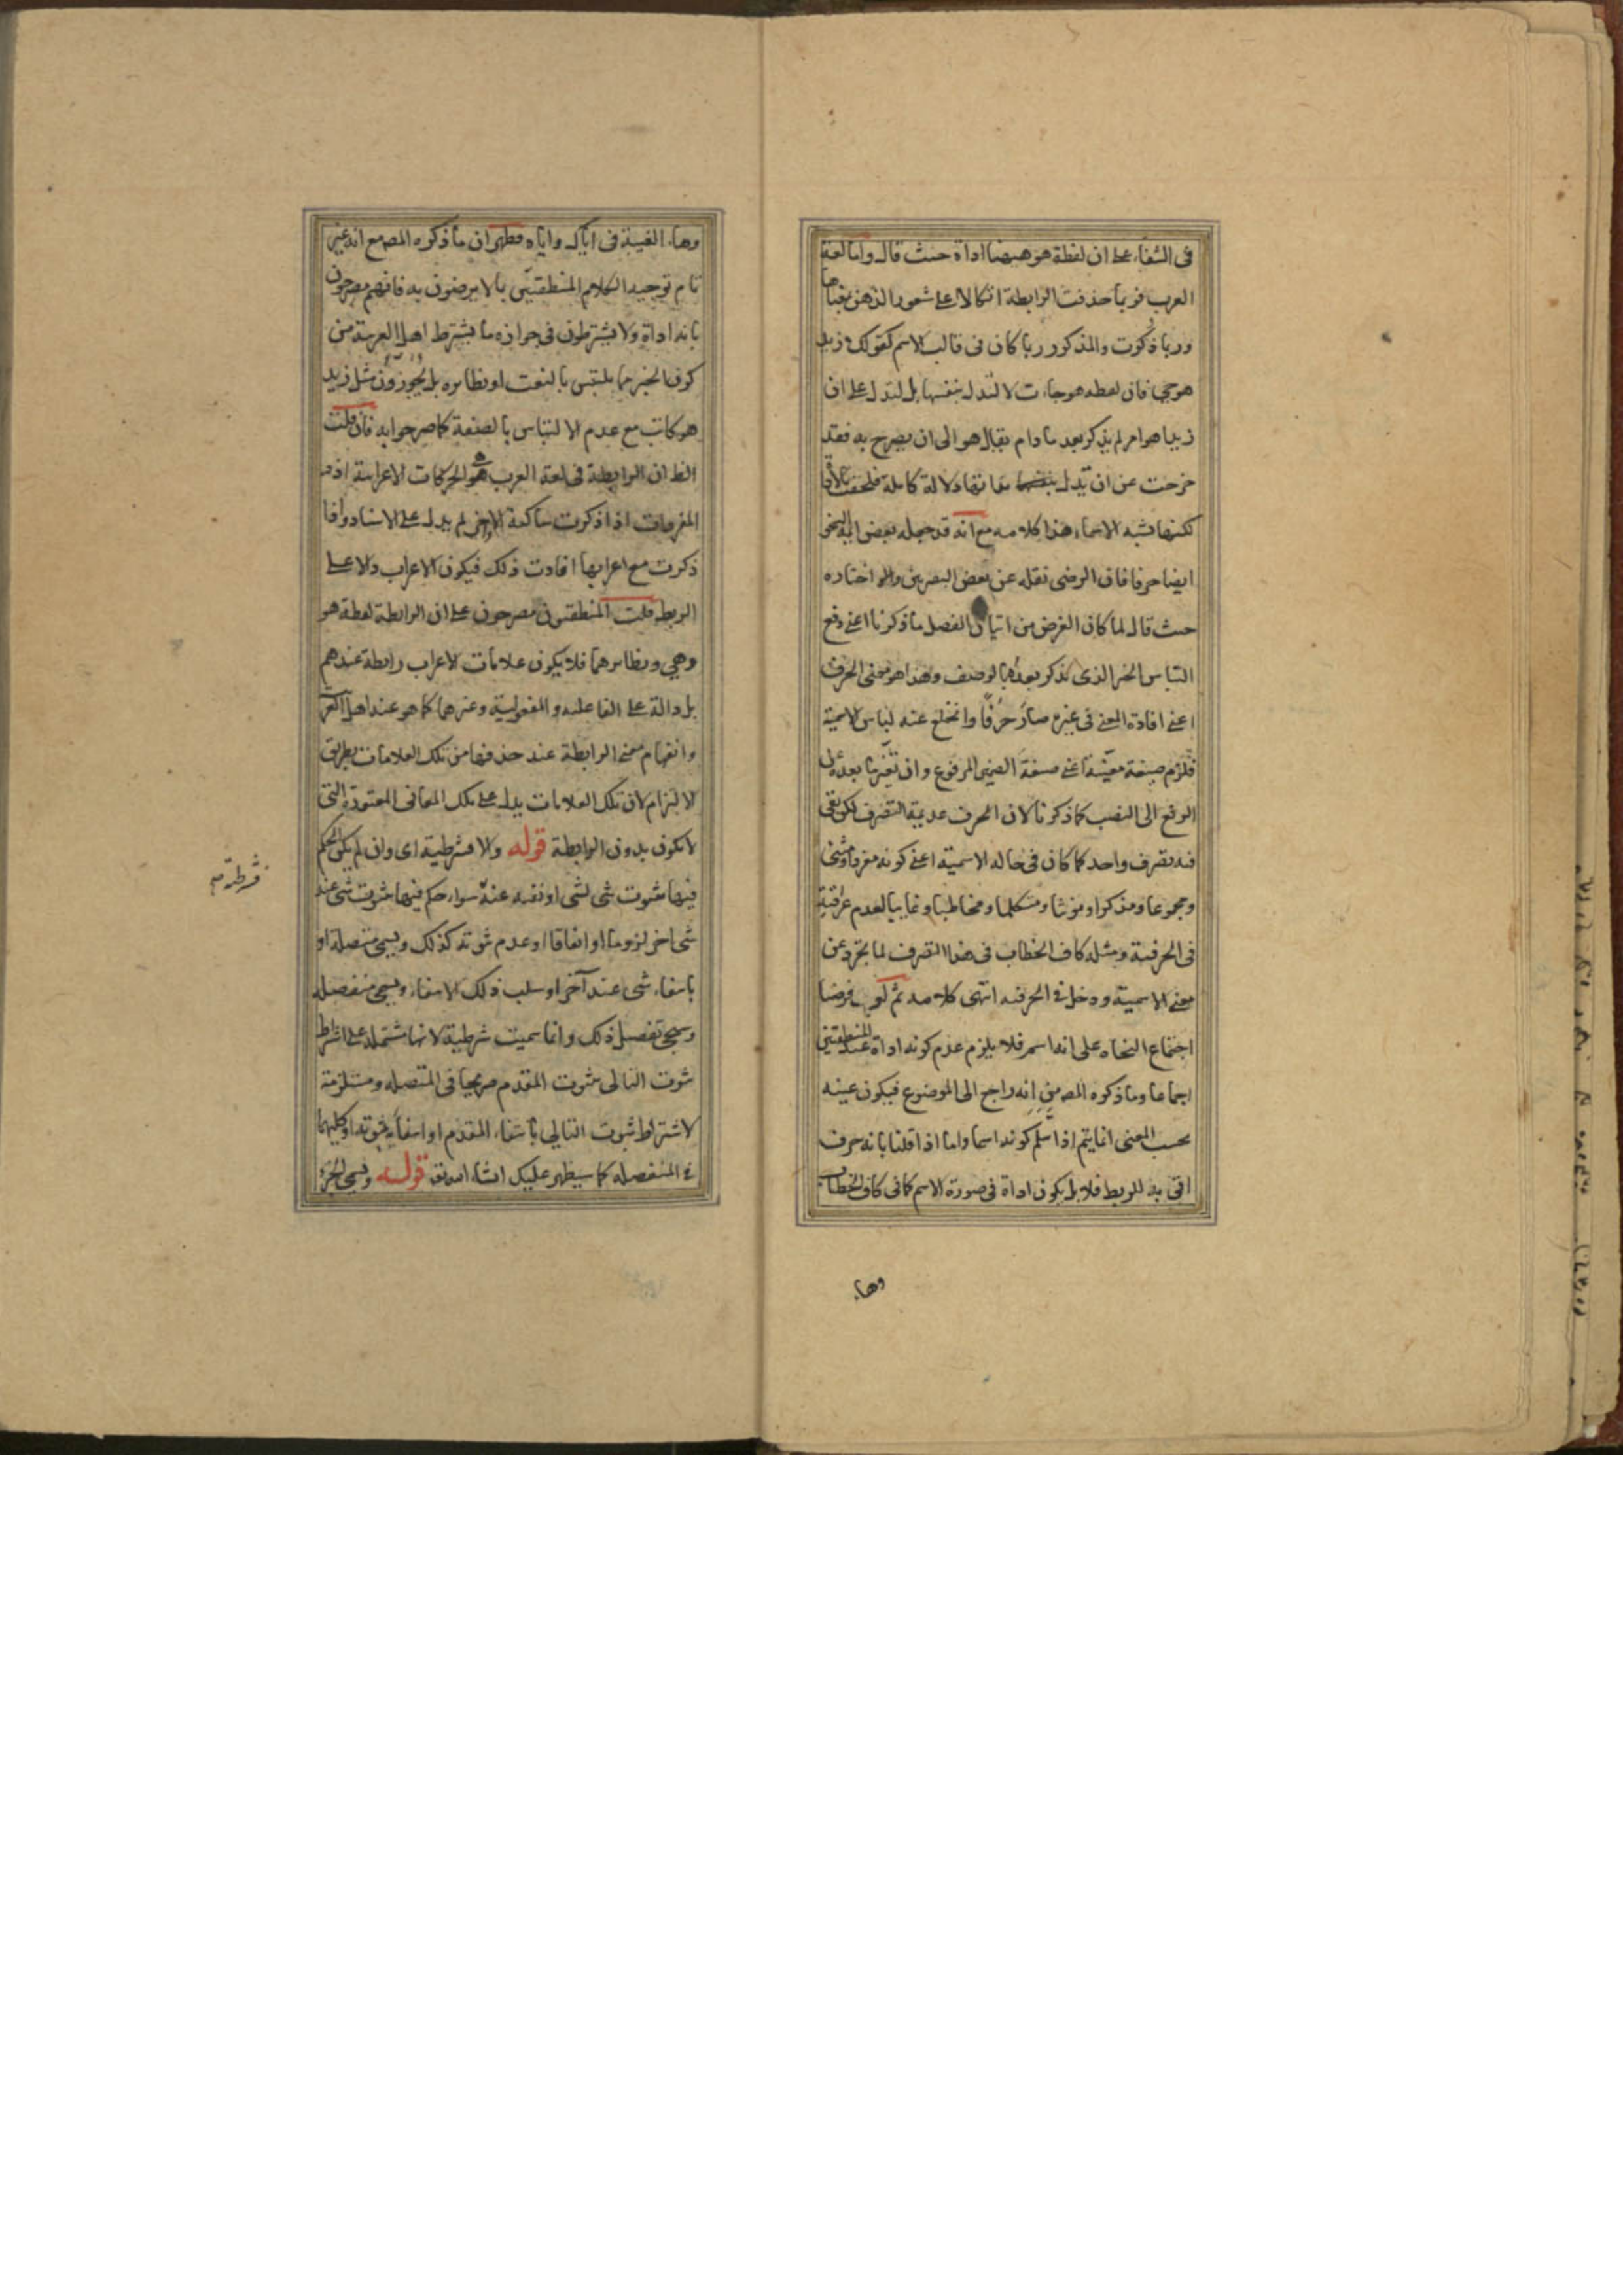 في الشفاء على ان لفظة هو ههنا اداة حيث قال واما لغة
العرب فربما حذفت الرابطة اتكالا على شعور الذهن بمعناها
وربما ذكرت والمذكور ربما كان في قالب الاسم كقولك زيد
هو حي فان لفظه هو جاءت لا لتدل بنفسها بل لتدل على ان
زيدا هو امر لم يذكر بعد ما دام يقال هو الى ان يصرح به فقد
خرجت عن ان تدل بنفسها دلالة كاملة فلحقت بالأدوات
لكنها تشبه الاسماء هذا كلامه مع انه قد جعله بعض ائمة النحو
ايضا حرفا فان الرضى نقله عن بعض البصريين واختاره
حيث قال لما كان الغرض من اتيان الفصل ما ذكرنا اعني دفع
التباس الخبر الذي يذكر بعده بالوصف وهذا هو معنى الحرف
اعني افادة المعنى في غيره صار حرفا وانخلع عنه لباس الاسمية
فلزم صيغة معينة اعني صيغة الضمير المرفوع وان تغير ما بعده عن
الرفع الى النصب كما ذكرنا لان الحرف عديمة التصرف لكن بقي
فيه تصرف واحد كما كان في حاله الاسمية اعني كونه مفردا ومثنى
ومجموعا ومذكرا ومؤنثا ومتكلما ومخاطبا وغايبا لعدم عراقته
في الحرفية ومثله كاف الخطاب في هذا التصرف لما تجرد عن
معنى الاسمية ودخل في الحرفية انتهى كلامه ثم لو فرضنا
اجتماع النحاه على انه اسم فلا يلزم عدم كونه اداة عند المنطقيين
اجماعا وما ذكره المص من انه راجع الى الموضوع فيكون عينه
بحسب المعنى انما يتم اذا سلم كونه اسما واما اذا قلنا بانه حرف
اتى به للربط فلا بل يكون اداة في صورة الاسم كما في كاف الخطاب
وهاء
وهاء الغيبة في اياك واياه فظهر ان ما ذكره المص مع انه غير
تام توجيه الكلام المنطقيين بما لا يرضون به فانهم مصرحون
بانه اداة ولا يشترطون في جوازه ما يشترط اهل العربية من
كون الخبر مما يلتبس بالنعت او نظائره بل يجوزون مثل زيد
هو كاتب مع عدم الالتباس بالصفة كما صرحوا به فان قلت
الظ ان الرابطة في لغة العرب هو الحركات الاعرابية اذ
المفردات اذا ذكرت ساكنة الاخر لم يدل على الاسناد واذا
ذكرت مع اعرابها افادت ذلك فيكون الاعراب دالا على
الربط قلت المنطقيون مصرحون على ان الرابطة لفظة هو
وهي ونظائرهما فلا يكون علامات الاعراب رابطة عندهم
بل دالة على الفاعلية والمفعولية وغيرهما كما هو عند اهل العربية
وانفهام معنى الرابطة عند حذفها من تلك العلامات بطريق
الالتزام لان تلك العلامات يدل على تلك المعاني المعتورة التي
لا تكون بدون الرابطة قوله والا فشرطية اى وان لم يكن الحكم
فيها بثبوت شى لشى او نفيه عنه سواء حكم فيها بثبوت شى عند
شى اخر لزوما او اتفاقا او عدم ثبوته كذلك ويسمى متصلة او
بانتفاء شى عند آخر او سلب ذلك الانتفاء ويسمى منفصلة
وسيجى تفصيل ذلك وانما سميت شرطية لانها مشتملة على اشتراط
ثبوت التالى بثبوت المقدم صريحا في المتصله ومستلزمة
لاشتراط ثبوت التالي بانتفاء المقدم او انتفاءه بثبوته او كليهما
في المنفصله كما سيظهر عليك انشاء الله تع قوله ويسمى الجزء